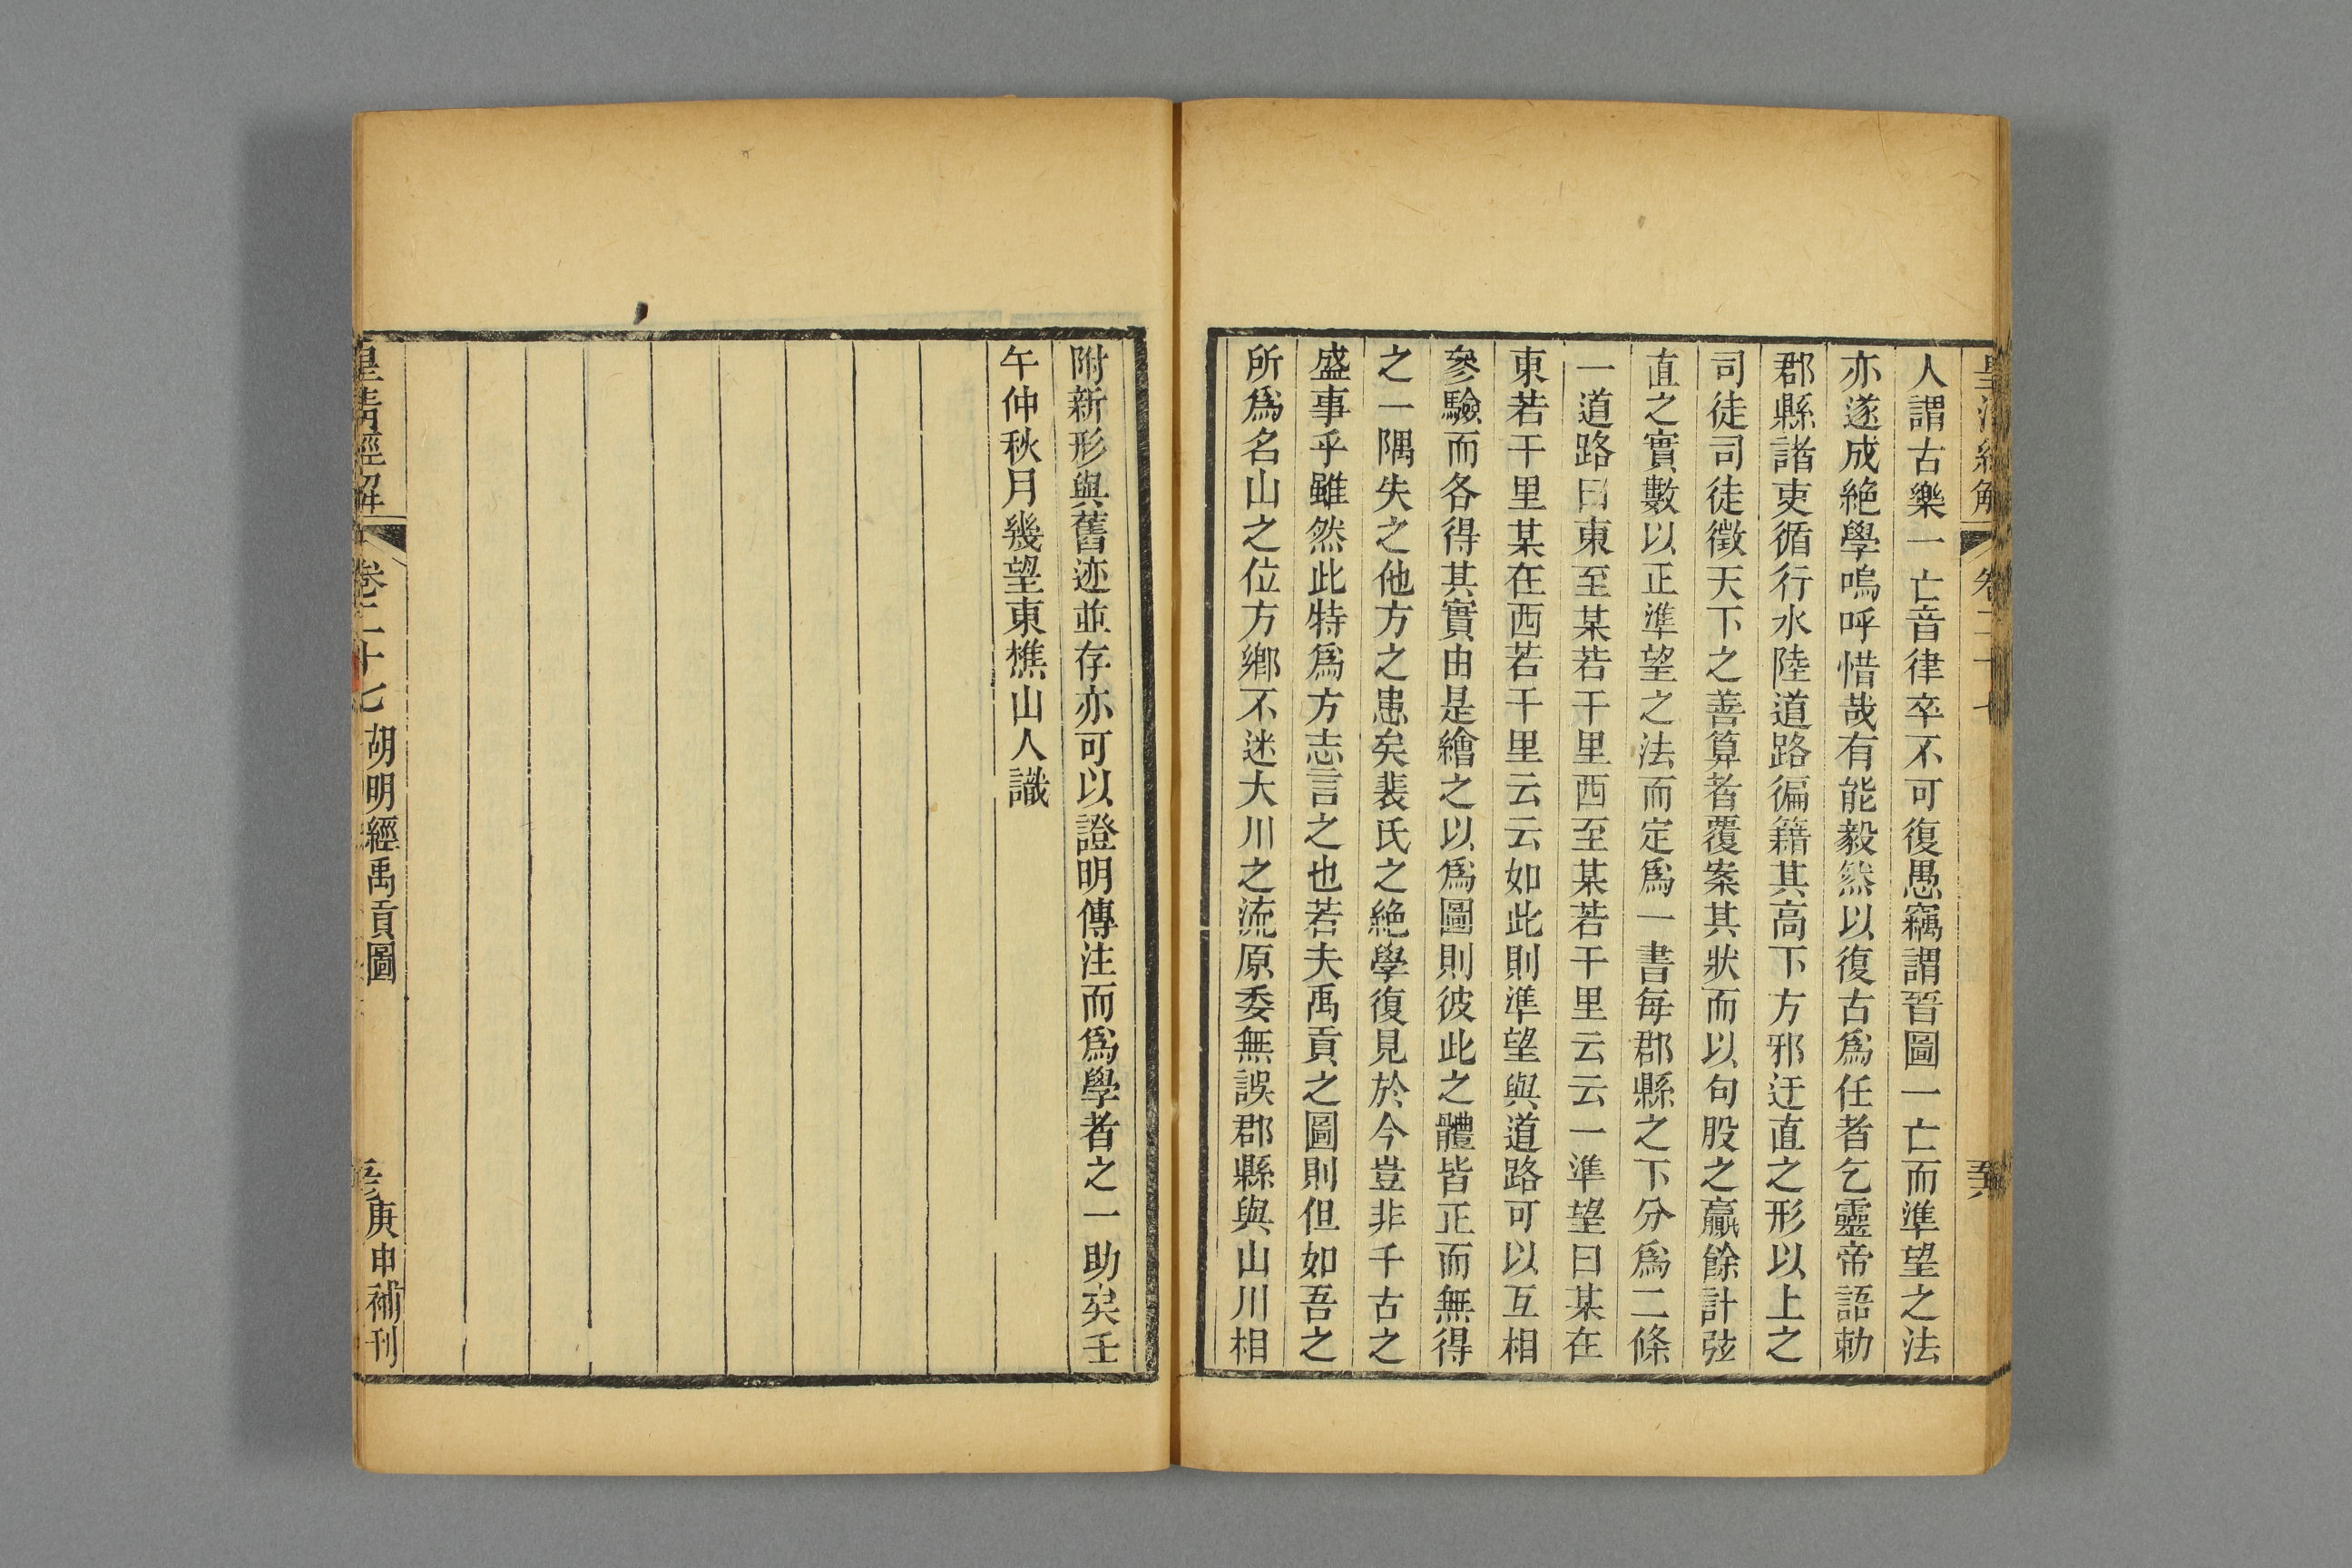 皇清經解 卷二十七 至六
人謂古樂一亡音律卒不可復愚竊謂晉圖一亡而準望之法
亦遂成絶學嗚呼惜哉有能毅然以復古爲任者乞靈帝語勅
郡縣諸吏循行水陸道路徧籍其高下方邪迂直之形以上之
司徒司徒徵天下之善算者覆案其狀而以句股之贏餘計弦
直之實數以正準望之法而定爲一書每郡縣之下分爲二條
一道路曰東至某若干里西至某若干里云云一準望曰某在
東若干里某在西若干里云云如此則準望與道路可以互相
參驗而各得其實由是繪之以爲圖則彼此之體皆正而無得
之一隅失之他方之患矣裴氏之絶學復見於今豈非千古之
盛事乎雖然此特爲方志言之也若夫禹貢之圖則但如吾之
所爲名山之位方鄉不迷大川之流原委無誤郡縣與山川相
附新形與舊迹並存亦可以證明傳注而爲學者之一助矣壬
午仲秋月幾望東樵山人識
皇清經解 卷二十七 胡明經禹貢圖 庚申補刊